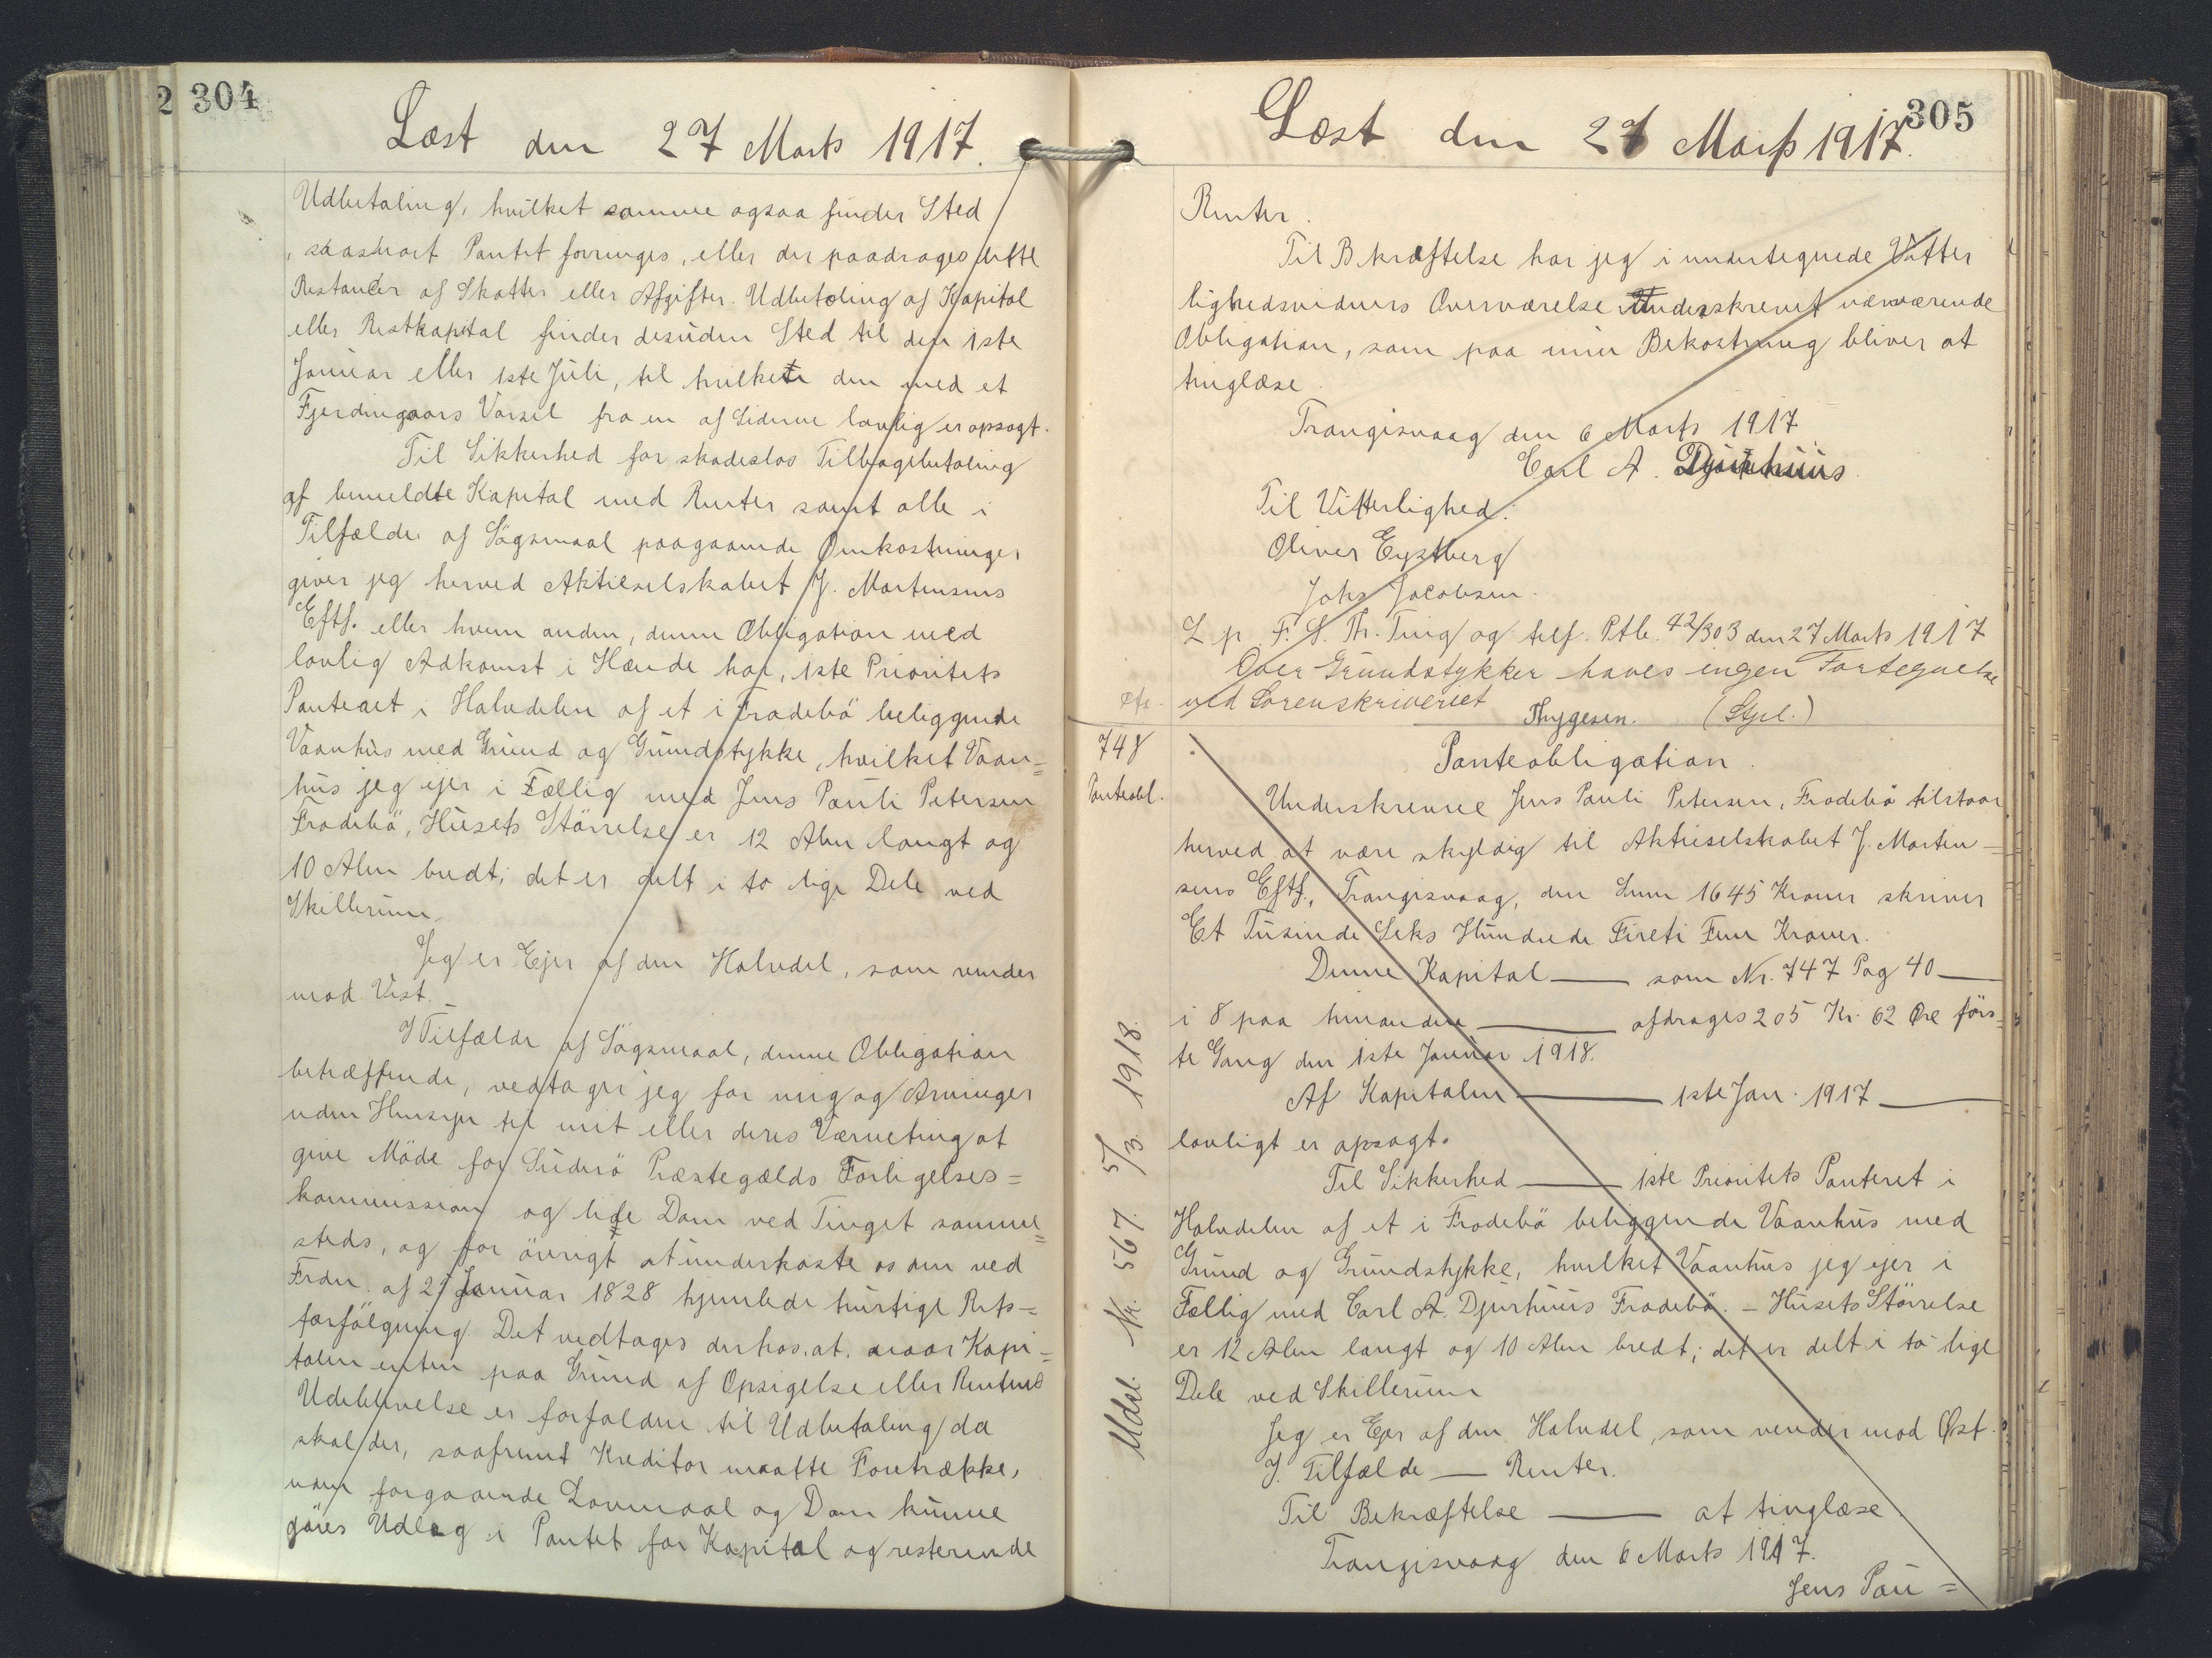 2 304
Læst den 27 Marts 1917.
Udbetaling, hvilket samme ogsaa finder Sted
, saasnart Pantet forringes, eller der paadrages dette
Restancer af Skatter eller Afgifter. Udbetaling af Kapital
eller Restkapital finder desuden Sted til den 1ste
Januar eller 1ste Juli, til hvilken den med et
Fjerdingaars Varsel fra en af Siderne lovlig er opsagt.
Til Sikkerhed for skadeslos Tilbagebetaling
af bemeldte Kapital med Renter samt alle i
Tilfælde af Sögsmaal paagaaende Omkostninger
giver jeg herved Aktieselskabet J. Mortensens
Eftf. eller hvem anden, denne Obligation med
lovlig Adkomst i Hænde har, 1ste Prioritets
Panteret i Halvdelen af et i Frodebö beliggende
Vaanhus med Grund og Grundstykke, hvilket Vaan=
hus jeg ejer i Fællig med Jens Pauli Petersen
Frodebö, Husets Störrelse er 12 Alen langt og
10 Alen bredt; det er delt i to lige Dele ved
Skillerum.
Jeg er Ejer af den Halvdel, som vender
mod Vest. _
I Tilfælde af Sögsmaal, denne Obligation
betræffende, vedtager jeg for mig og Arvinger
uden Hensyn til mit eller deres Værneting at
give Möde for Suderö Præstegælds Forligelses=
kommission og lide Dom ved Tinget samme=
steds, og for övrigt at underkaste os den ved
Frdn. af 25 Januar 1828 hjemlede hurtige Rets=
forfölgning. Det vedtages derhos, at, naar Kapi=
talen enten paa Grund af Opsigelse eller Rentens
Udeblivelse er forfalden til Udbetaling da
skal der, saafremt Kreditor maatte Foretrække,
uden forgaaende Lovmaal og Dom kunne
göres Udlæg i Pantet for Kapital og resterende
305
Læst den 27 Marts 1917.
Renter.
Til Bekræftelse har jeg i undertegnede Vitter
lighedsvidners Overværelse Underskrevet nærværende
Obligation, som paa min Bekostning bliver at
tinglæse.
Trangisvaag den 6 Marts 1917
Carl A. Djurhuus.
Til Vitterlighed:
Oliver Eystberg
Johs Jacobsen.
L p F. S. Th. Ting og tilf. Ptb. 42/303 den 27 Marts 1917
Over Grundstykker haves ingen Fortegnelse
ved Sorenskriveriet Thygesen. (Stpl.)
748
Panteobl.
Panteobligation.
Underskrevne Jens Pauli Petersen, Frodebö tilstaar
herved at være skyldig til Aktieselskabet J. Morten=
sens Eftf., Trangisvaag, den Sum 1645 Kroner skriver
Et Tusinde Seks Hundrede Fireti Fem Kroner.
Denne Kapital — som Nr. 747 Pag 40 —
i 8 paa hinanden — afdrages 205 Kr. 62 Øre förs=
te Gang den 1ste Januar 1918.
Af Kapitalen — 1ste Jan. 1917 —
lovligt er opsagt.
Til Sikkerhed — 1ste Prioritets Panteret i
Halvdelen af et i Frodebö beliggende Vaanhus med
Grund og Grundstykke, hvilket Vaanhus jeg ejer i
Fællig med Carl A. Djurhuus Frodebö. – Husets Störrelse
er 12 Alen langt og 10 Alen bredt; det er delt i to lige
Dele ved Skillerum
Jeg er Ejer af den Halvdel, som vender mod Øst.
I Tilfælde — Renter.
Til Bekræftelse — at tinglæse
Trangisvaag den 6 Marts 1917.
Jens Pau=
Udsl. Nr. 567. 5/3. 1918.